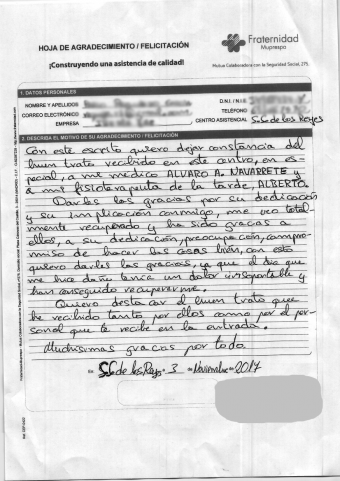 HOJA DE AGRADECIMIENTO / FELICITACIÓN
¡Construyendo una asistencia de calidad!
Fraternidad
Muprespa
Mutua Colaboradora con la Seguridad Social, 275
1. DATOS PERSONALES
NOMBRE Y APELLIDOS
D.N.I. / N.I.E.
CORREO ELECTRÓNICO
TELÉFONO
EMPRESA
CENTRO ASISTENCIAL S.S. de los Reyes
2. DESCRIBA EL MOTIVO DE SU AGRADECIMIENTO / FELICITACIÓN
Con este escrito quiero dejar constancia del
buen trato recibido en este centro, en es-
pecial, a mi médico ALVARO A. NAVARRETE y
a mi fisioterapeuta de la tarde, ALBERTO.
Darles las gracias por su dedicación
y su implicación conmigo, me veo total-
mente recuperado y ha sido gracias a
ellos, a su dedicación, preocupación, compro-
miso de hacer las cosas bien, con esto
quiero darles las gracias, ya que el día que
me hice daño tenía un dolor insoportable y
han conseguido recuperarme.
Quiero destacar el buen trato que
he recibido tanto por ellos como por el per-
sonal que te recibe en la entrada.
Muchísimas gracias por todo.
En SS de los Reyes 3 de Noviembre de 2017